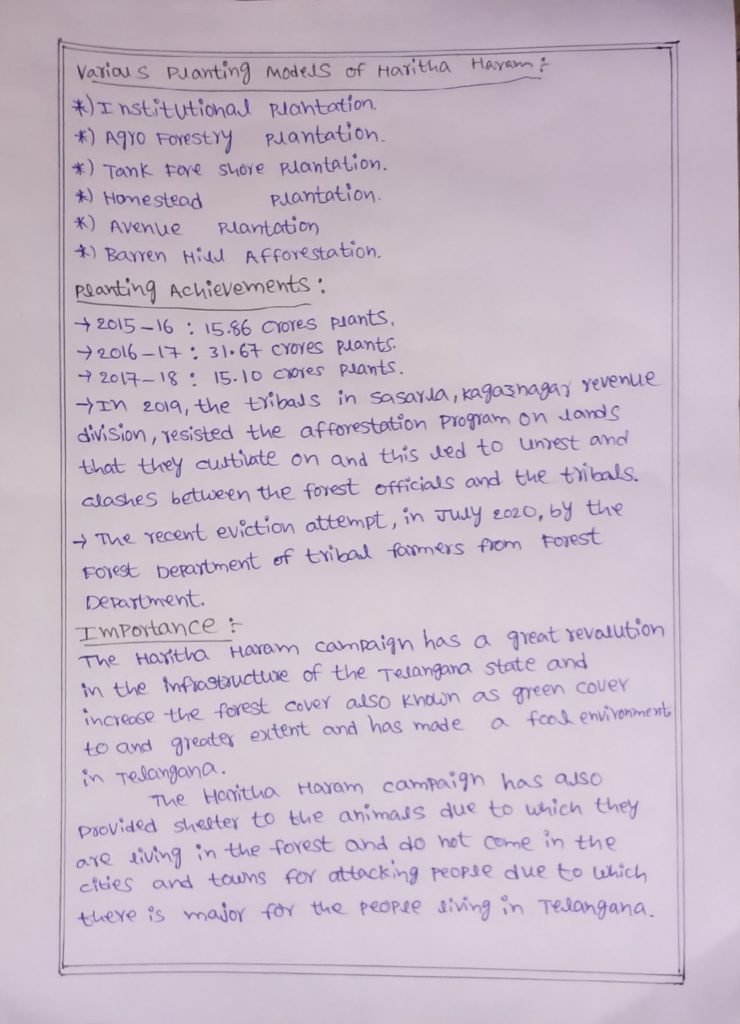 Various Planting Models of Haritha Haram :-
*) Institutional Plantation.
*) Agro Forestry Plantation.
*) Tank Fore shore Plantation.
*) Homestead Plantation.
*) Avenue Plantation
*) Barren Hill Afforestation.
Planting Achievements :
→ 2015-16 : 15.86 crores plants.
→ 2016-17 : 31.67 crores plants.
→ 2017-18 : 15.10 crores plants.
→ In 2019, the tribals in sasarla, kagaznagar revenue
division, resisted the afforestation program on lands
that they cultivate on and this led to unrest and
clashes between the forest officials and the tribals.
→ The recent eviction attempt, in July 2020, by the
Forest Department of tribal farmers from Forest
Department.
Importance :-
The Haritha Haram campaign has a great revalution
in the infrastructure of the Telangana state and
increase the forest cover also known as green cover
to and greater extent and has made a fcol environment
in Telangana.
The Haritha Haram campaign has also
provided shelter to the animals due to which they
are living in the forest and do not come in the
cities and towns for attacking people due to which
there is major for the people living in Telangana.